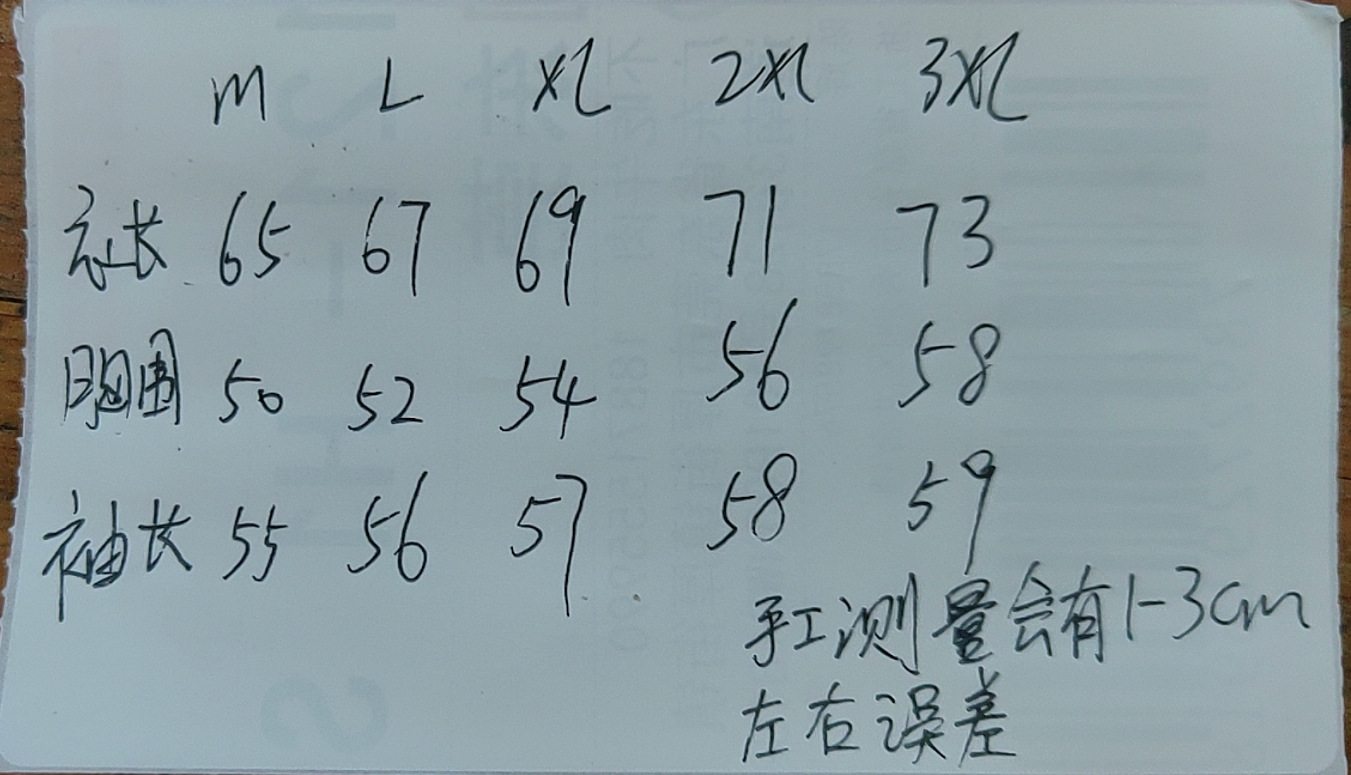 M L XL 2XL 3XL
衣长 65 67 69 71 73
胸围 50 52 54 56 58
袖长 55 56 57 58 59
手工测量会有1-3cm
左右误差